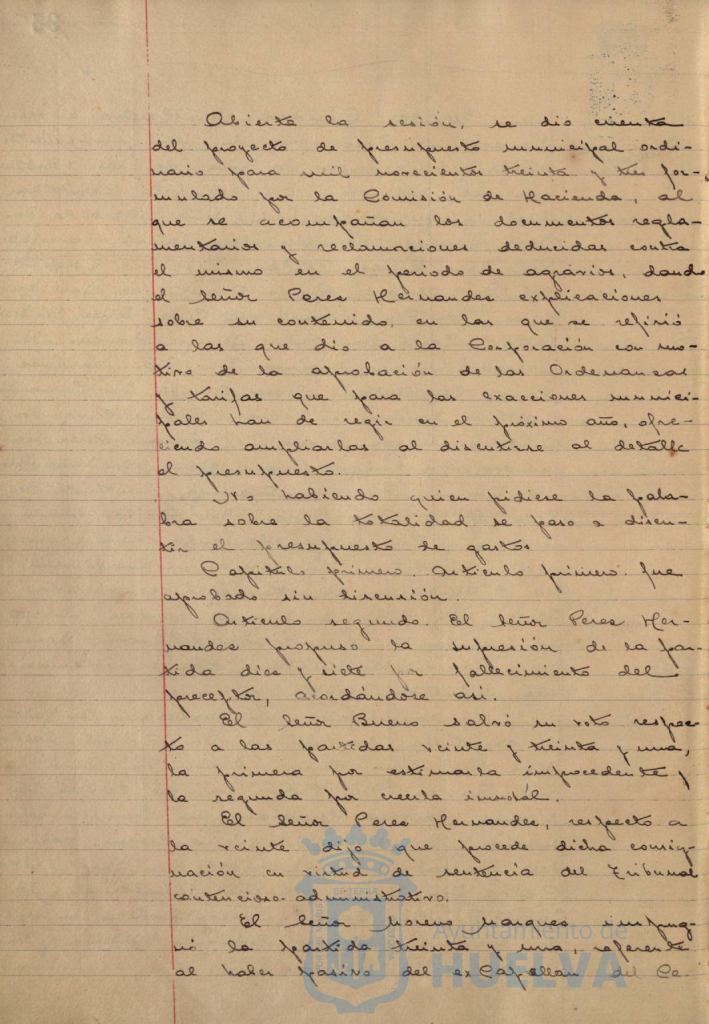 Abierta la sesión, se dio cuenta
del proyecto de presupuesto municipal ordi-
nario para mil novecientos treinta y tres for-
mulado por la Comisión de Hacienda, al
que se acompañan los documentos regla-
mentarios y reclamaciones deducidas contra
el mismo en el periodo de agravios, dando
el Señor Peres Hernandes explicaciones
sobre su contenido, en las que se refirió
a las que dio a la Corporación con mo-
tivo de la aprobación de las Ordenanzas
y tarifas que para las exacciones munici-
pales han de regir en el próximo año, ofre-
ciendo ampliarlas al discutirse al detalle
el presupuesto.
No habiendo quien pidiese la pala-
bra sobre la totalidad se paso a discu-
tir el presupuesto de gastos
Capitulo primero. Articulo primero. fue
aprobado sin discusión.
Articulo segundo. El Señor Peres Her-
nandes propuso la supresión de la par-
tida dies y siete por fallecimiento del
preceptor, acordándose asi.
El Señor Bueno salvó su voto respec-
to a las partidas veinte y treinta y una,
la primera por estimarla improcedente y
la segunda por creerla inmoral.
El Señor Peres Hernandes, respecto a
la veinte dijo que procede dicha consig-
nación en virtud de sentencia del Tribunal
contencioso-administrativo.
El Señor Moreno Marques impug-
nó la partida treinta y una, referente
al haber pasivo del ex Capellan del Ce-
Ayuntamiento de
HUELVA